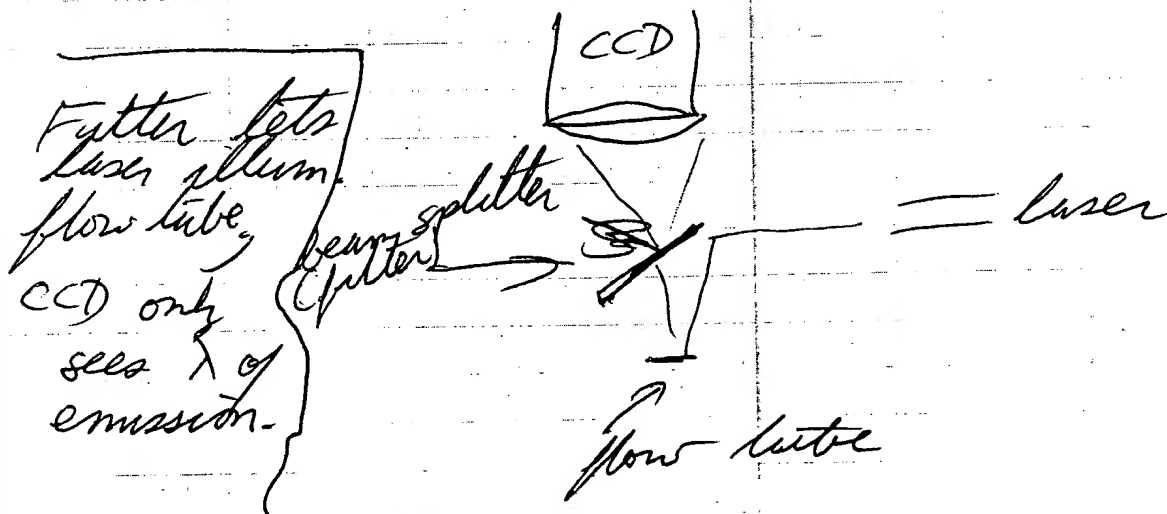 CCD
Filter lets
laser illum.
flow tube,
CCD only
sees λ of
emission.
beam splitter
(filter)
laser
flow tube